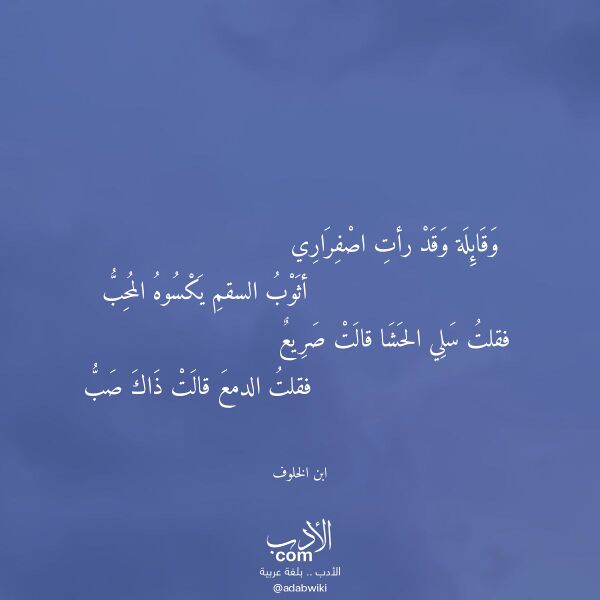 وَقَائِلَة وَقَدْ رأتِ اصْفِرَارِي
أثَوْبُ السقمِ يَكْسُوهُ المُحِبُّ
فقلتُ سَلِي الحَشَا قالَتْ صَرِيعٌ
فقلتُ الدمعَ قالَتْ ذَاكَ صَبُّ
ابن الخلوف
الأدب
com
الأدب .. بلغة عربية
@adabwiki